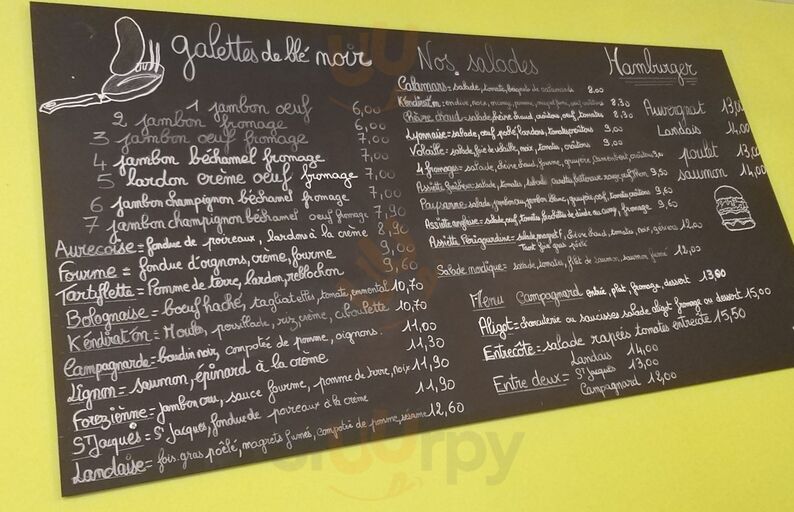 galettes de blé noir
1 jambon oeuf 6,00
2 jambon fromage 6,00
3 jambon oeuf fromage 7,00
4 jambon béchamel fromage 7,00
5 lardon crème oeuf fromage 7,00
6 jambon champignon béchamel fromage 7,00
7 jambon champignon béchamel oeuf fromage 7,90
Aurecoise = fondue de poireaux, lardon à la crème 8,90
Fourme = fondue d'oignons, crème, fourme 9,00
Tartiflette = Pomme de terre, lardon, reblochon 9,60
Bolognaise = boeuf haché, tagliatelles, tomate, emmental 10,70
Kéndirat'on = Moules, persillade, riz, crème, ciboulette 10,70
Campagnarde = boudin noir, compotée de pomme, oignons. 11,00
Lignon = saumon, épinard à la crème 11,30
Forezienne = Jambon cru, sauce fourme, pomme de terre, noix 11,90
St Jacques = St Jacques, fondue de poireaux à la crème 11,90
Landaise = fois gras poêlé, magrets fumés, compotée de pomme, sésame 12,60
Nos salades
Calamars = salade, tomate, beignets de calamards 8,00
Kéndirat'on = 8,30
Chèvre chaud = salade, chèvre chaud, croûtons, oeuf, tomates 8,30
Lyonnaise = salade, oeuf poché, lardons, tomates, croûtons 9,00
Volaille = salade, foie de volaille, noix, tomate, croûtons 9,00
4 fromages = salade, chèvre chaud, fourme, gruyère, croûtons 9,30
Assiette fraîcheur = salade, tomates, 9,50
Paysanne = salade, jambon cru, jambon blanc, gruyère, oeuf, tomate, croûtons 9,60
Assiette anglaise = salade, oeuf, tomate, curry, fromage 9,60
Assiette Périgourdine = salade, magret F, chèvre chaud, tomates, noix, gésiers 12,00
Toast foie gras poêlé
Salade nordique = salade, tomates, filet de saumon, saumon fumé 12,00
Menu Campagnard entrée, plat, fromage, dessert 13,80
Aligot = charcuterie ou saucisses salade aligot fromage ou dessert 15,00
Entrecôte = salade rapées tomates entrecôte 15,50
Entre deux = Landais 14,00
St Jacques 13,00
Campagnard 12,00
Hamburger
Auvergnat
Landais 14,00
poulet
saumon 14,00
sluurpy